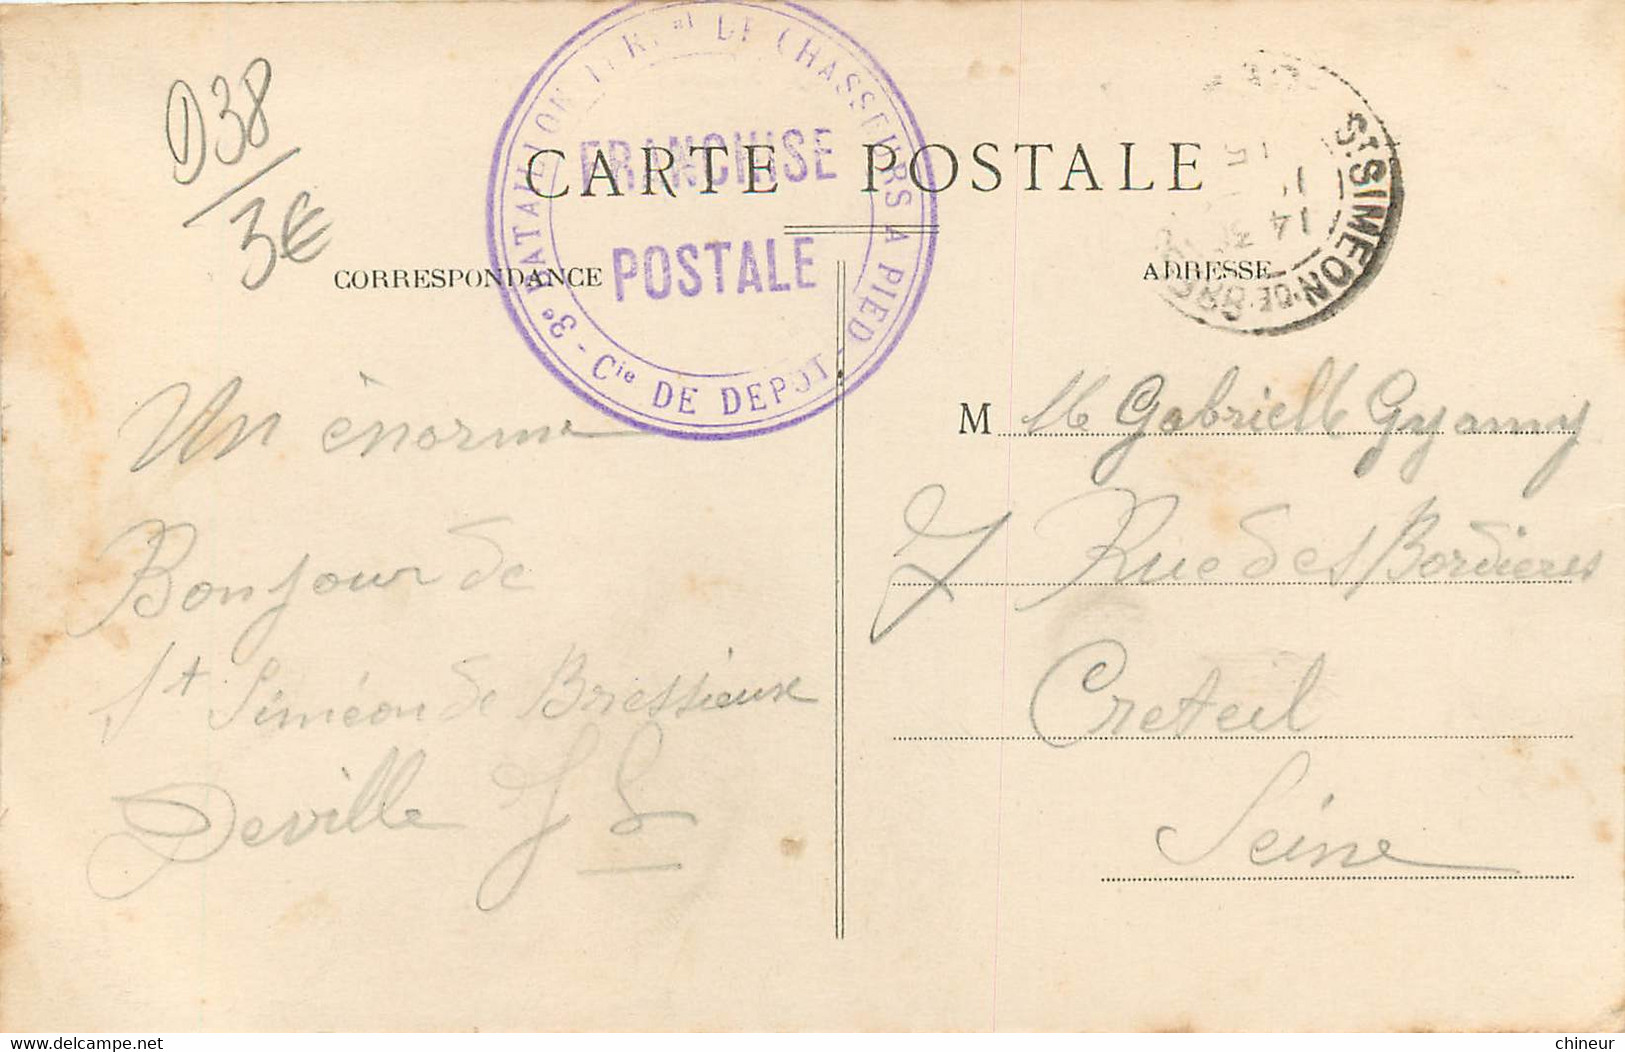 D38
3€
3e BATAILLON TERal DE CHASSEURS A PIED - Cie DE DEPOT -
FRANCHISE
POSTALE
CARTE POSTALE
St SIMEON-DE-BRES
14
CORRESPONDANCE
ADRESSE
Un énorme
Bonjour de
St Siméon de Bressieux
Deville
M
Gabrielle Gyamy
7 Rue des Bordieres
Creteil
Seine
www.delcampe.net
chineur